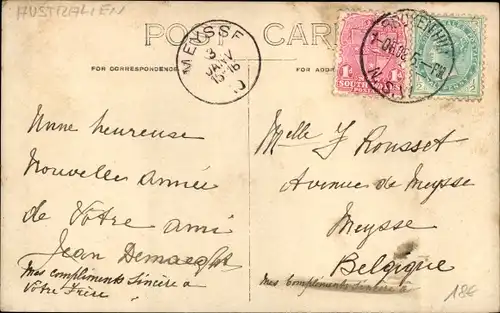 AUSTRALIEN
POST CARD
FOR CORRESPONDENCE
FOR ADDRESS
MEYSSE
3
JANV
15-16
BROKEN HILL
N.S.W
1d
SOUTH
Unne heureuse
Nouvelle année
de Votre ami
Jean Demaeght
Mes compliments Sincère a
Votre Frère
Melle J Rousset
Avenue de Meysse
Meysse
Belgique
Mes Compliments Sincère a
18€